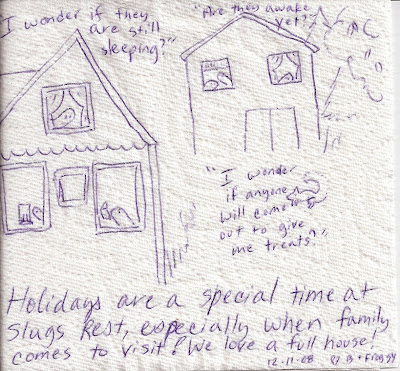 "I wonder if they
are still
sleeping?"
"Are they awake
yet?"
"I wonder
if anyone
will come
out to give
me treats."
Holidays are a special time at
Slugs Rest, especially when family
comes to visit! We love a full house!
12.11.08